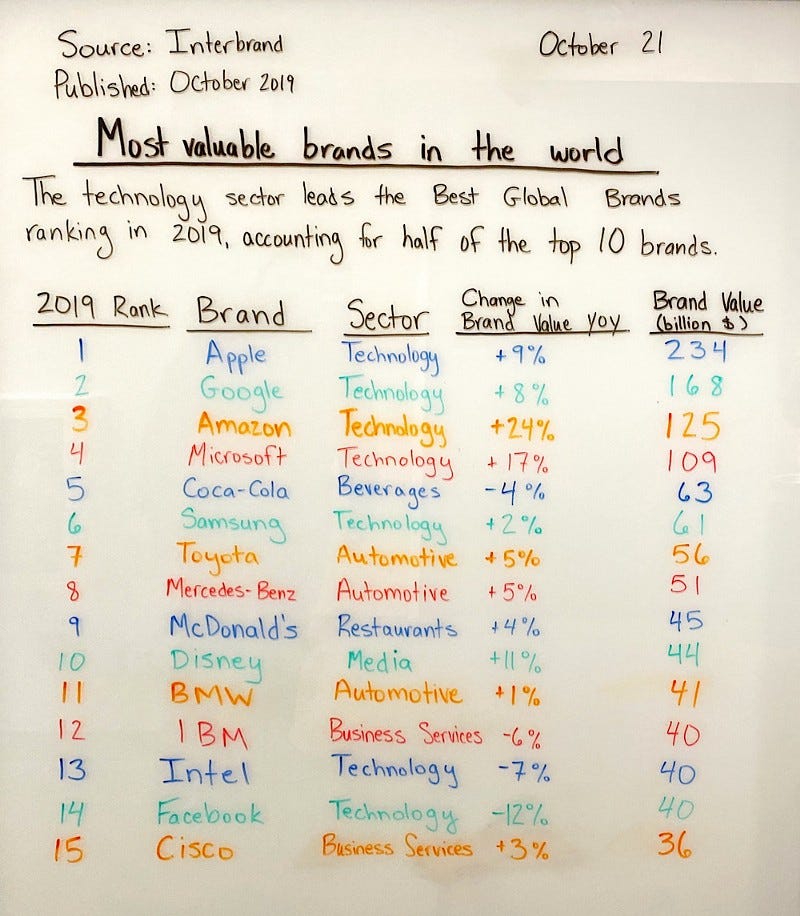 Source: Interbrand October 21
Published: October 2019
Most valuable brands in the world
The technology sector leads the Best Global Brands
ranking in 2019, accounting for half of the top 10 brands.
2019 Rank Brand Sector Change in Brand Value yoy Brand Value (billion $)
1 Apple Technology +9% 234
2 Google Technology +8% 168
3 Amazon Technology +24% 125
4 Microsoft Technology +17% 109
5 Coca-Cola Beverages -4% 63
6 Samsung Technology +2% 61
7 Toyota Automotive +5% 56
8 Mercedes-Benz Automotive +5% 51
9 McDonald's Restaurants +4% 45
10 Disney Media +11% 44
11 BMW Automotive +1% 41
12 IBM Business Services -6% 40
13 Intel Technology -7% 40
14 Facebook Technology -12% 40
15 Cisco Business Services +3% 36